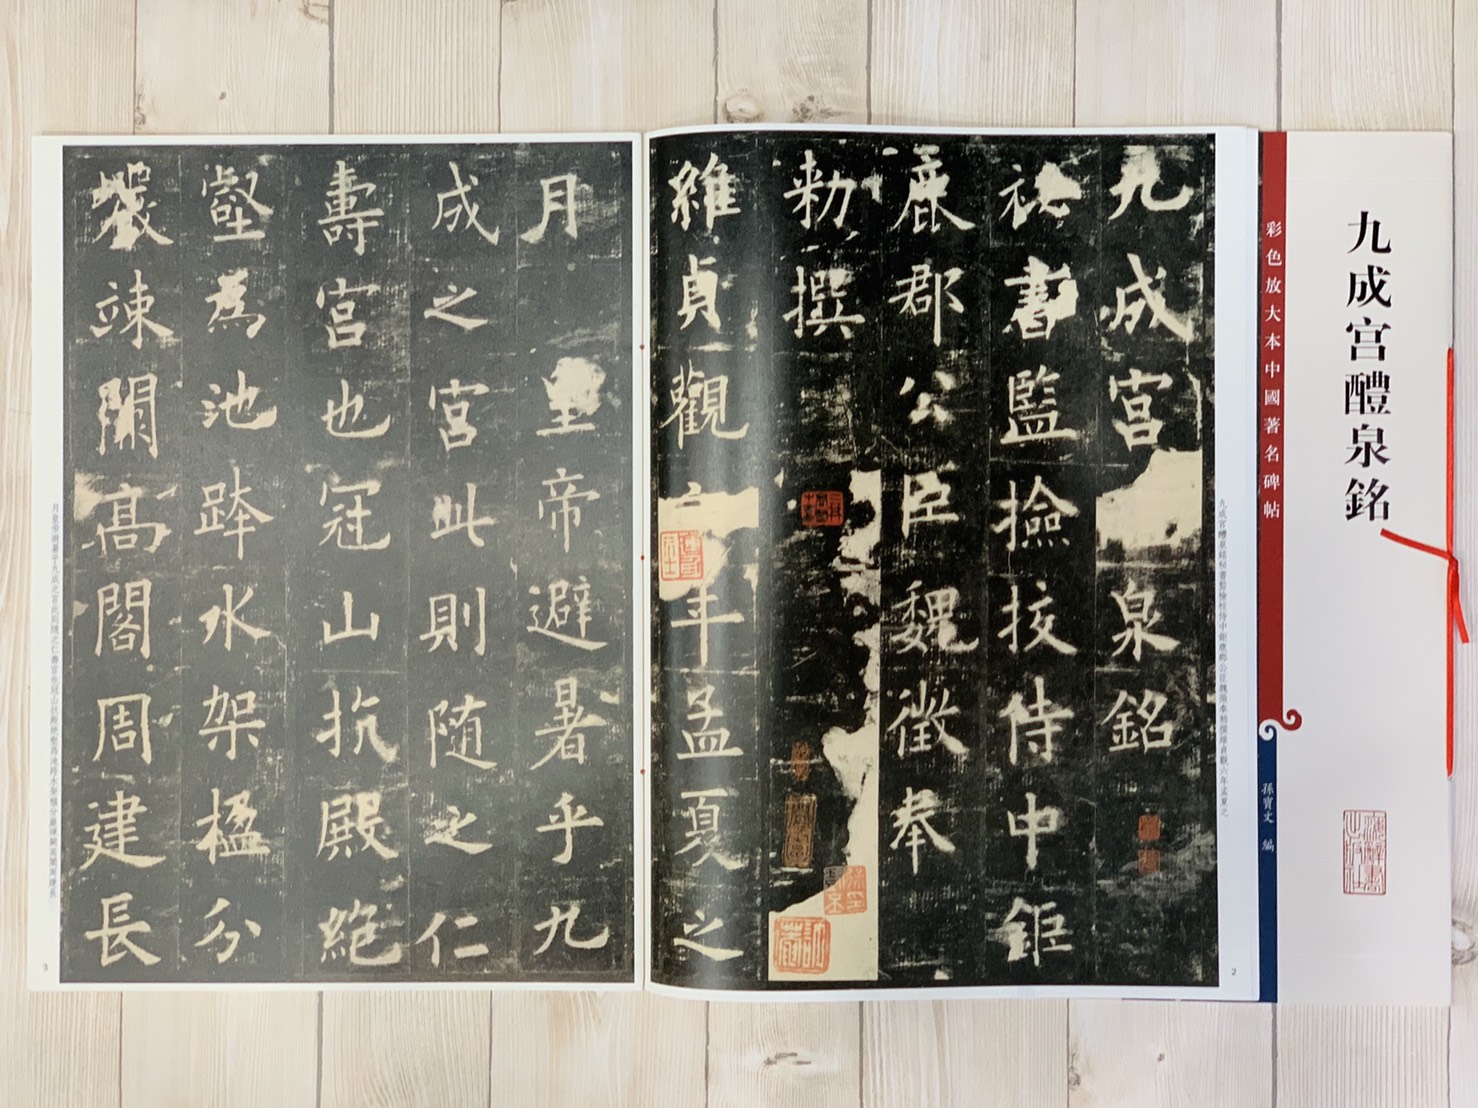 九成宮醴泉銘
彩色放大本中國著名碑帖
孫寶文 編
九成宮醴泉銘秘書監檢校侍中鉅鹿郡公臣魏徵奉勅撰維貞觀六年孟夏之
九成宮 泉銘
秘書監撿挍侍中鉅
鹿郡公臣魏徵奉
勅撰
維貞觀六年孟夏之
2
月皇帝避暑乎九
成之宮此則随之仁
壽宮也冠山抗殿絕
壑為池跨水架楹分
巖竦闕高閣周建長
月皇帝避暑乎九成之宮此則隨之仁壽宮也冠山抗殿絕壑為池跨水架楹分巖竦闕高閣周建長
3